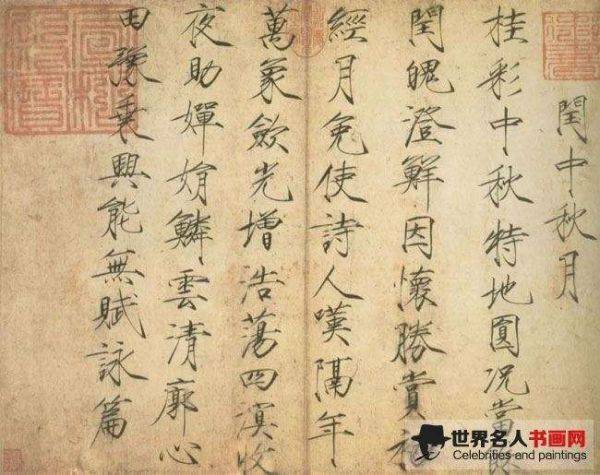 閏中秋月
桂彩中秋特地圓況當
閏魄澄鮮因懷勝賞初
經月免使詩人嘆隔年
萬象斂光增浩蕩四溟收
夜助嬋娟鱗雲清廓心
田豫乘興能無賦詠篇
世界名人书画网
Celebrities and paintings